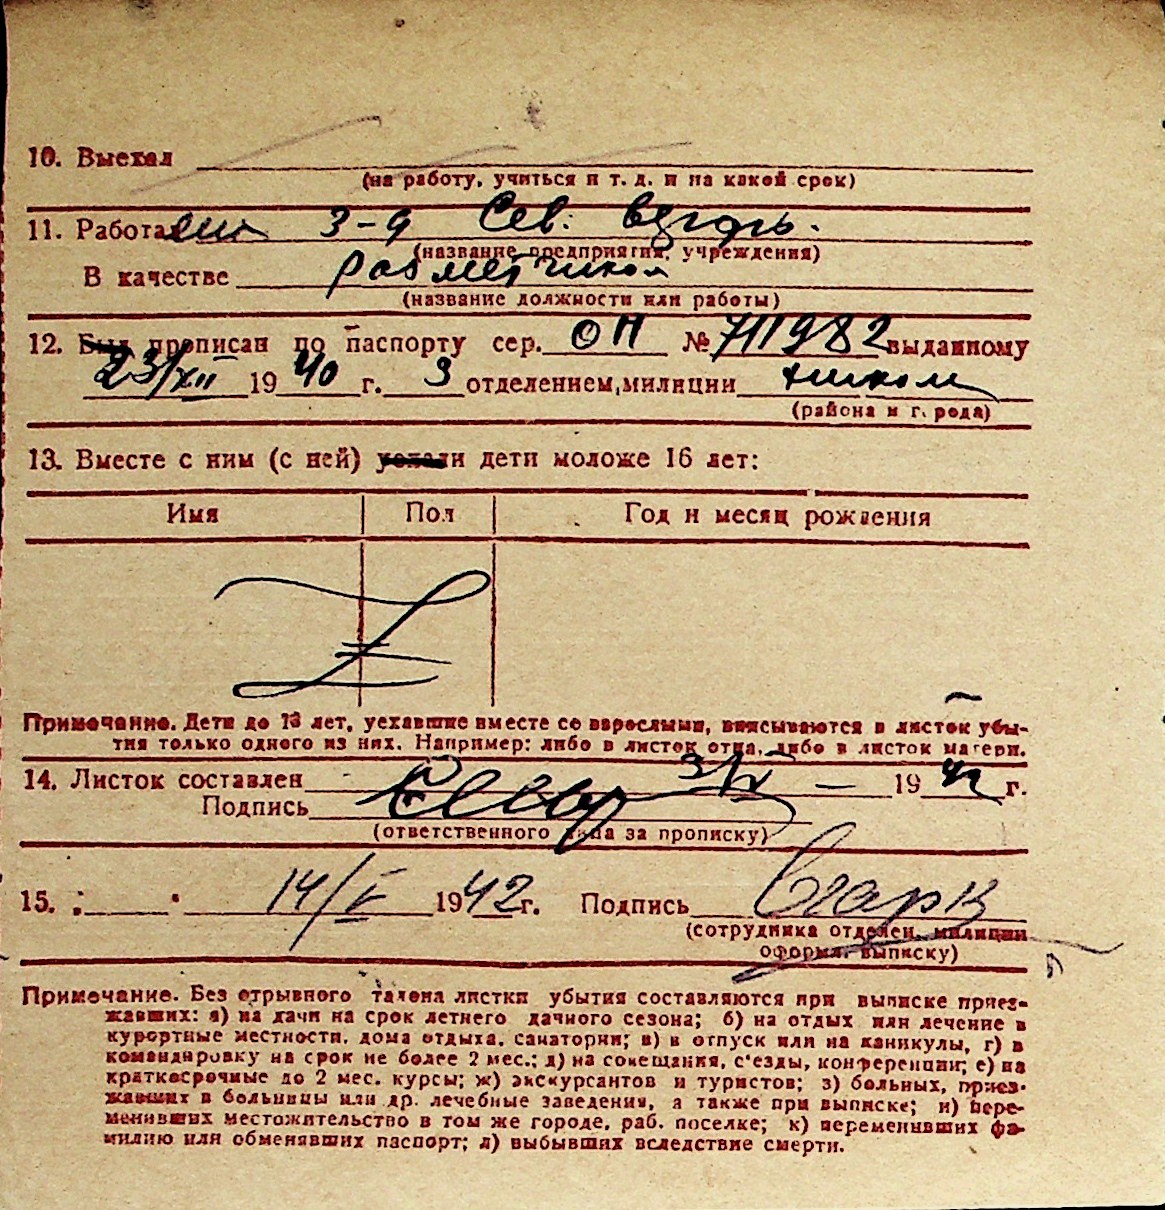 10. Выехал
(на работу, учиться и т. д. и на какой срок)
11. Работа 3-д Сев.
(название предприятия, учреждения)
В качестве разметчиком
(название должности или работы)
12. Был прописан по паспорту сер. ОН № 711982 выданному
23/XII 1940 г. 3 отделением милиции
(района и города)
13. Вместе с ним (с ней) уехали дети моложе 16 лет:
Имя Пол Год и месяц рождения
Примечание. Дети до 16 лет, уехавшие вместе со взрослыми, вписываются в листок убы-
тия только одного из них. Например: либо в листок отца, либо в листок матери.
14. Листок составлен 1942 г.
Подпись
(ответственного лица за прописку)
15. 14/V 1942 г. Подпись
(сотрудника отделен. милиции
оформ. выписку)
Примечание. Без отрывного талона листки убытия составляются при выписке приез-
жавших: а) на дачи на срок летнего дачного сезона; б) на отдых или лечение в
курортные местности, дома отдыха, санатории; в) в отпуск или на каникулы, г) в
командировку на срок не более 2 мес.; д) на совещания, с'езды, конференции; е) на
краткосрочные до 2 мес. курсы; ж) экскурсантов и туристов; з) больных, приез-
жавших в больницы или др. лечебные заведения, а также при выписке; и) пере-
менивших местожительство в том же городе, раб. поселке; к) переменивших фа-
милию или обменявших паспорт; л) выбывших вследствие смерти.